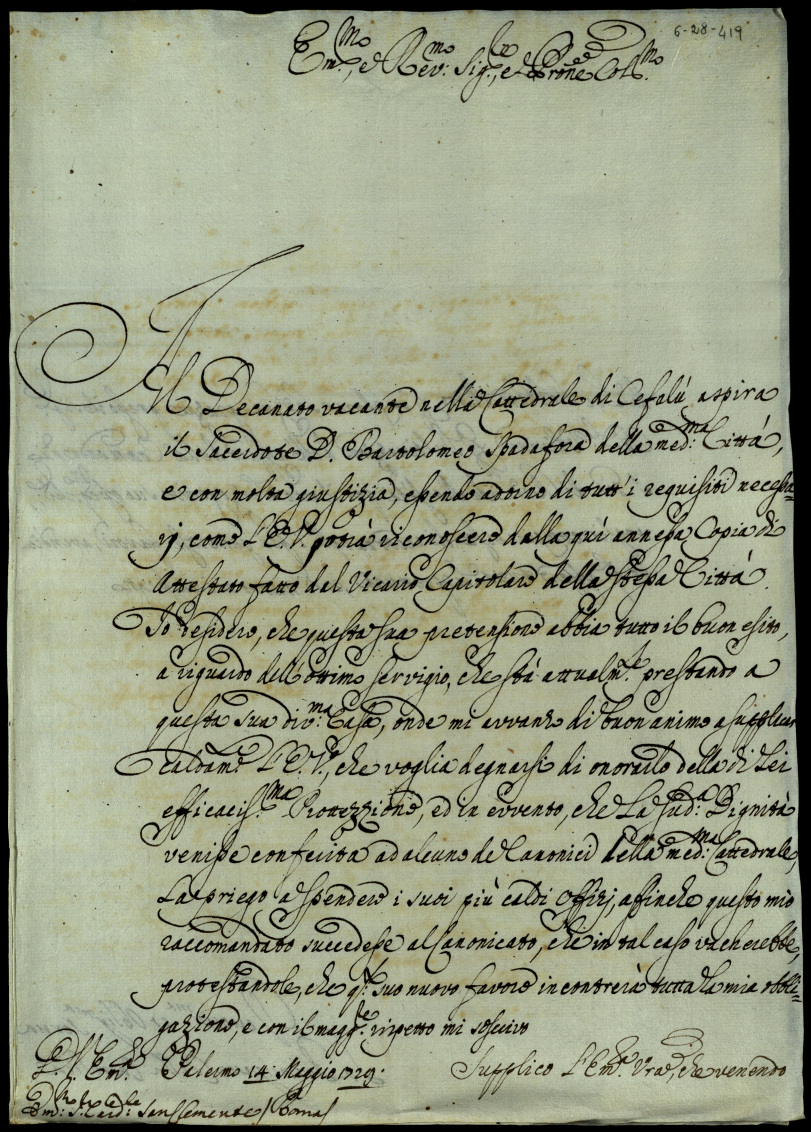 6-28-419
Em.mo, e Rev.mo Sig.re, e Prone Col.mo
Il Decanato vacante nella Cattedrale di Cefalù aspira
il Sacerdote D. Bartolomeo Spadafora della med.ma Città,
e con molta giustizia, essendo adorno di tutt'i requisiti necessa=
rij, come l'E.V. potrà riconoscere dalla quì annessa Copia di
Attestato fatto dal Vicario Capitolare della stessa Città.
Io desidero, che questa sua pretensione abbia tutto il buon esito,
a riguardo dell'ottimo servigio, che stà attualm.te prestando a
questa sua div.ma Casa, onde mi avvanzo di buon animo a supplicar
caldam.te l'E.V., che voglia degnarsi di onorarlo della di Lei
efficacis.ma Protezzione, ed in evvento, che La sud.a Dignità
venisse conferita ad alcuno de Canonici della med.ma Cattedrale,
La priego a spendere i suoi più caldi Offizj, affinche questo mio
raccomandato succedesse al Canonicato, che in tal caso vacherebbe,
protestandole, che q.to suo nuovo favore incontrerà tutta la mia obbli=
gazione, e con il magg.re rispetto mi soscrivo
Palermo 14 Maggio 1729. Supplico l'Em.za Vra, che venendo
Sr Card.le San Clemente / Roma /